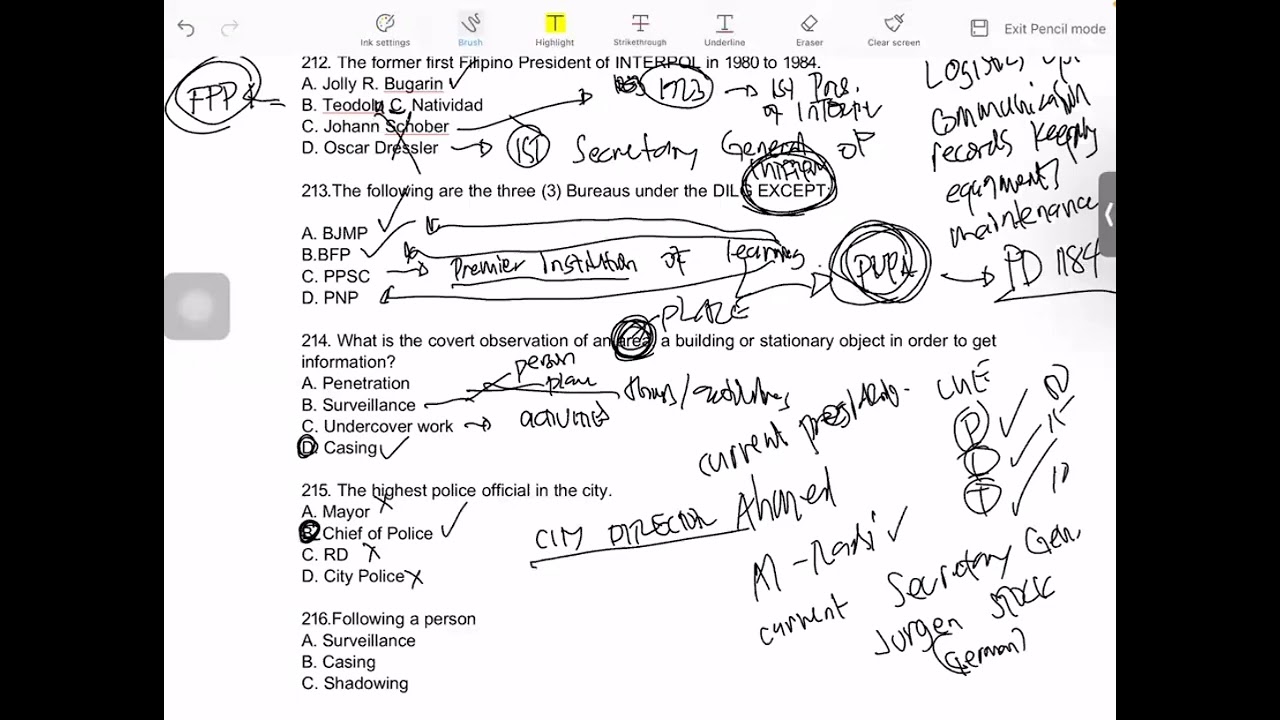 Ink settings
Brush
Highlight
Strikethrough
Underline
Eraser
Clear screen
Exit Pencil mode
212. The former first Filipino President of INTERPOL in 1980 to 1984.
A. Jolly R. Bugarin
B. Teodolu C. Natividad
C. Johann Schober
D. Oscar Dressler
FPP
1923
1st Pres. of Interpol
1st Secretary General of Interpol
Logistics
communication
records keeping
equipment
maintenance
213.The following are the three (3) Bureaus under the DILG EXCEPT:
A. BJMP
B.BFP
C. PPSC
D. PNP
Premier Institution of learning
PD 1184
214. What is the covert observation of an area, a building or stationary object in order to get
information?
A. Penetration
B. Surveillance
C. Undercover work
D. Casing
PLACE
person
place
activities
215. The highest police official in the city.
A. Mayor
B. Chief of Police
C. RD
D. City Police
CITY DIRECTOR
current
Ahmed
Al-Raisi
current Secretary Gen.
Jurgen Stock
(German)
P
L
T
10
216.Following a person
A. Surveillance
B. Casing
C. Shadowing